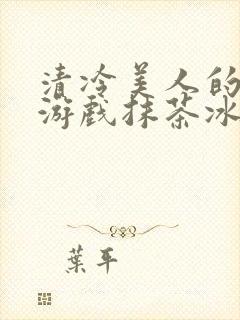 清冷美人的
游戏抹茶冰
葉平